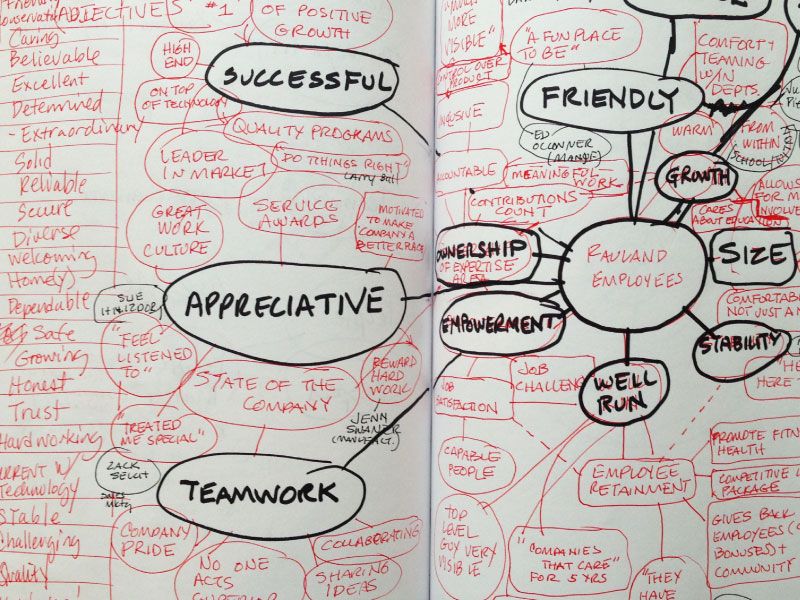 ADJECTIVES #1
Caring
Believable
Excellent
Determined
- Extraordinary
Solid
Reliable
Secure
Diverse
Welcoming
Home(y)
Dependable
Safe
Growing
Honest
Trust
Hardworking
CURRENT W/
Technology
Stable
Challenging
Quality
OF POSITIVE
GROWTH
HIGH
END
SUCCESSFUL
ON TOP
OF TECHNOLOGY
QUALITY PROGRAMS
LEADER
IN MARKET
"DO THINGS RIGHT"
GREAT
WORK
CULTURE
SERVICE
AWARDS
MOTIVATED
TO MAKE
COMPANY A
BETTER PLACE
APPRECIATIVE
SUE
"FEEL
LISTENED
TO"
STATE OF THE
COMPANY
REWARD
HARD
WORK
JENN
"TREATED
ME SPECIAL"
ZACK
TEAMWORK
COMPANY
PRIDE
NO ONE
ACTS
SUPERIOR
COLLABORATING
SHARING
IDEAS
MORE
VISIBLE"
CONTROL OVER
PRODUCT
"A FUN PLACE
TO BE"
FRIENDLY
COMFORTY
TEAMING
W/IN
DEPTS.
ED
WARM
FROM
WITHIN
GROWTH
ACCOUNTABLE
MEANINGFUL
WORK
CONTRIBUTIONS
COUNT
CARES
ABOUT EDUCATION
ALLOWS
FOR
OWNERSHIP
OF EXPERTISE
AREA
RAULAND
EMPLOYEES
SIZE
EMPOWERMENT
COMFORTABLE
NOT JUST A
STABILITY
JOB
CHALLENGE
WELL
RUN
JOB
SATISFACTION
CAPABLE
PEOPLE
EMPLOYEE
RETAINMENT
PROMOTE
HEALTH
COMPETITIVE
PACKAGE
GIVES BACK
EMPLOYEES
BONUSES) +
COMMUNITY
TOP
LEVEL
GUY VERY
VISIBLE
"COMPANIES
THAT CARE"
FOR 5 YRS
"THEY
HAVE